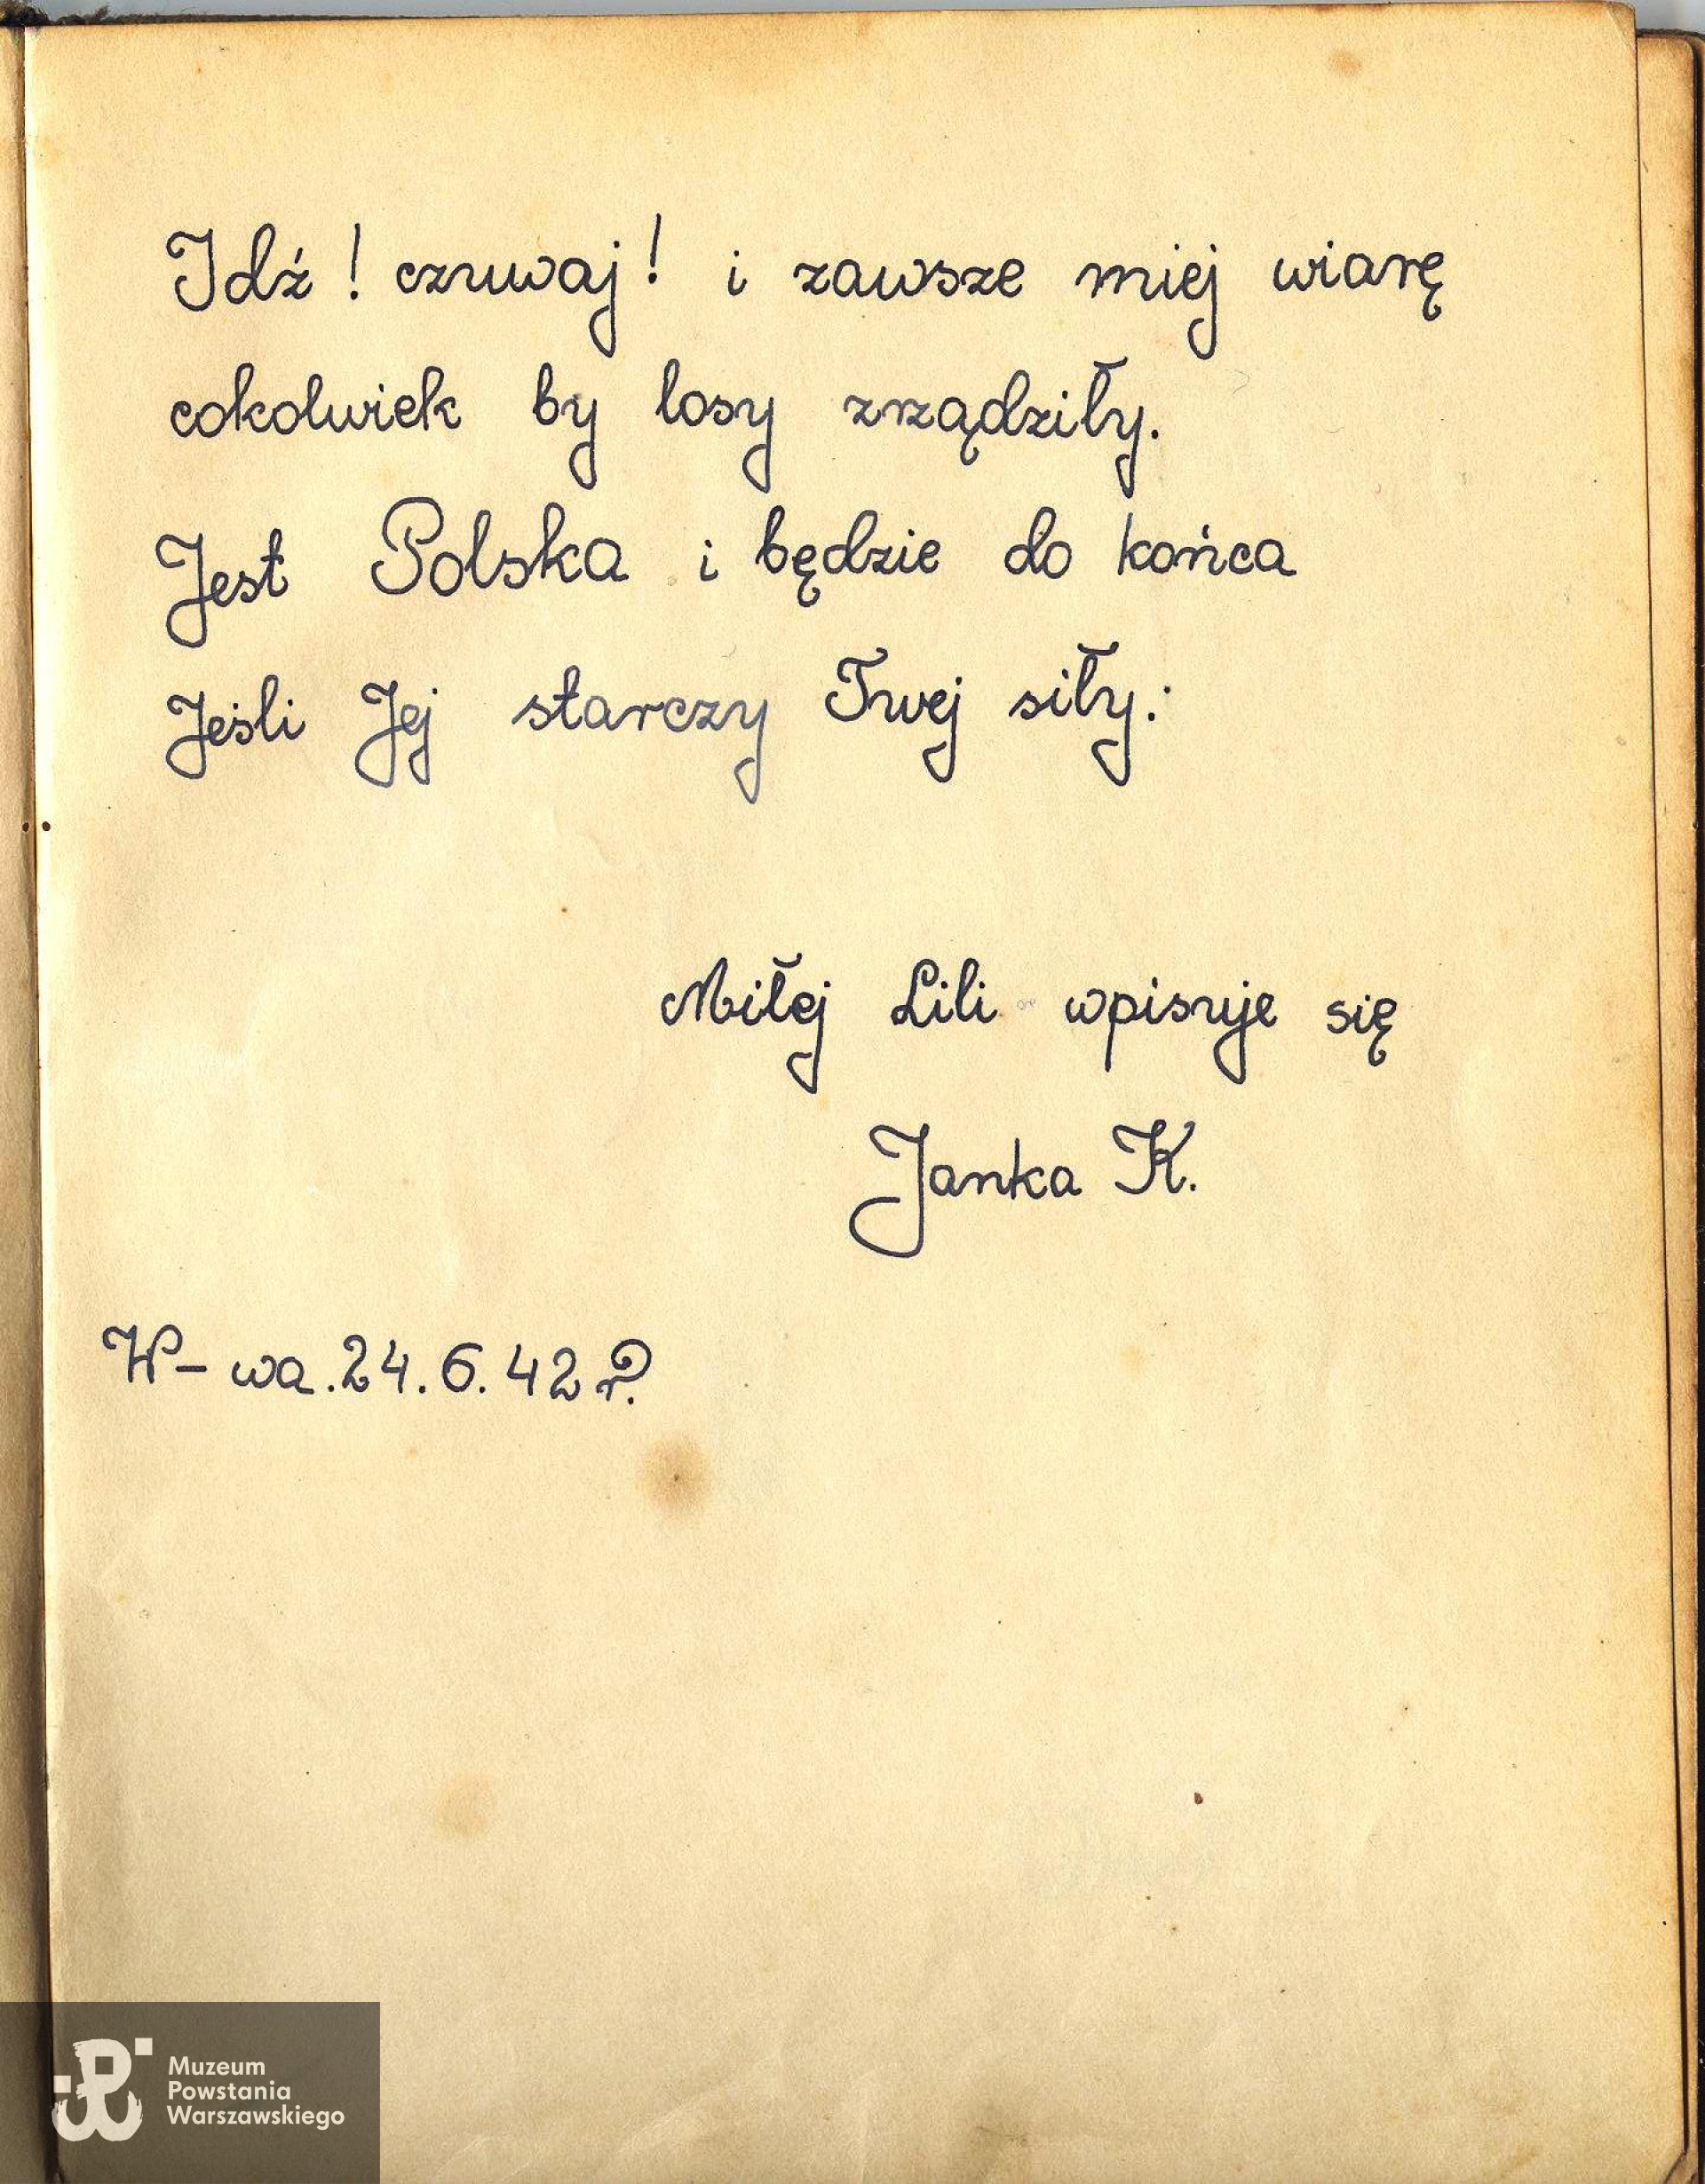 Idź! czuwaj! i zawsze miej wiarę
cokolwiek by losy zrządziły.
Jest Polska i będzie do końca
Jeśli Jej starczy Twej siły.
Miłej Lili wpisuje się
Janka K.
W-wa. 24.6.42 r.
Muzeum
Powstania
Warszawskiego